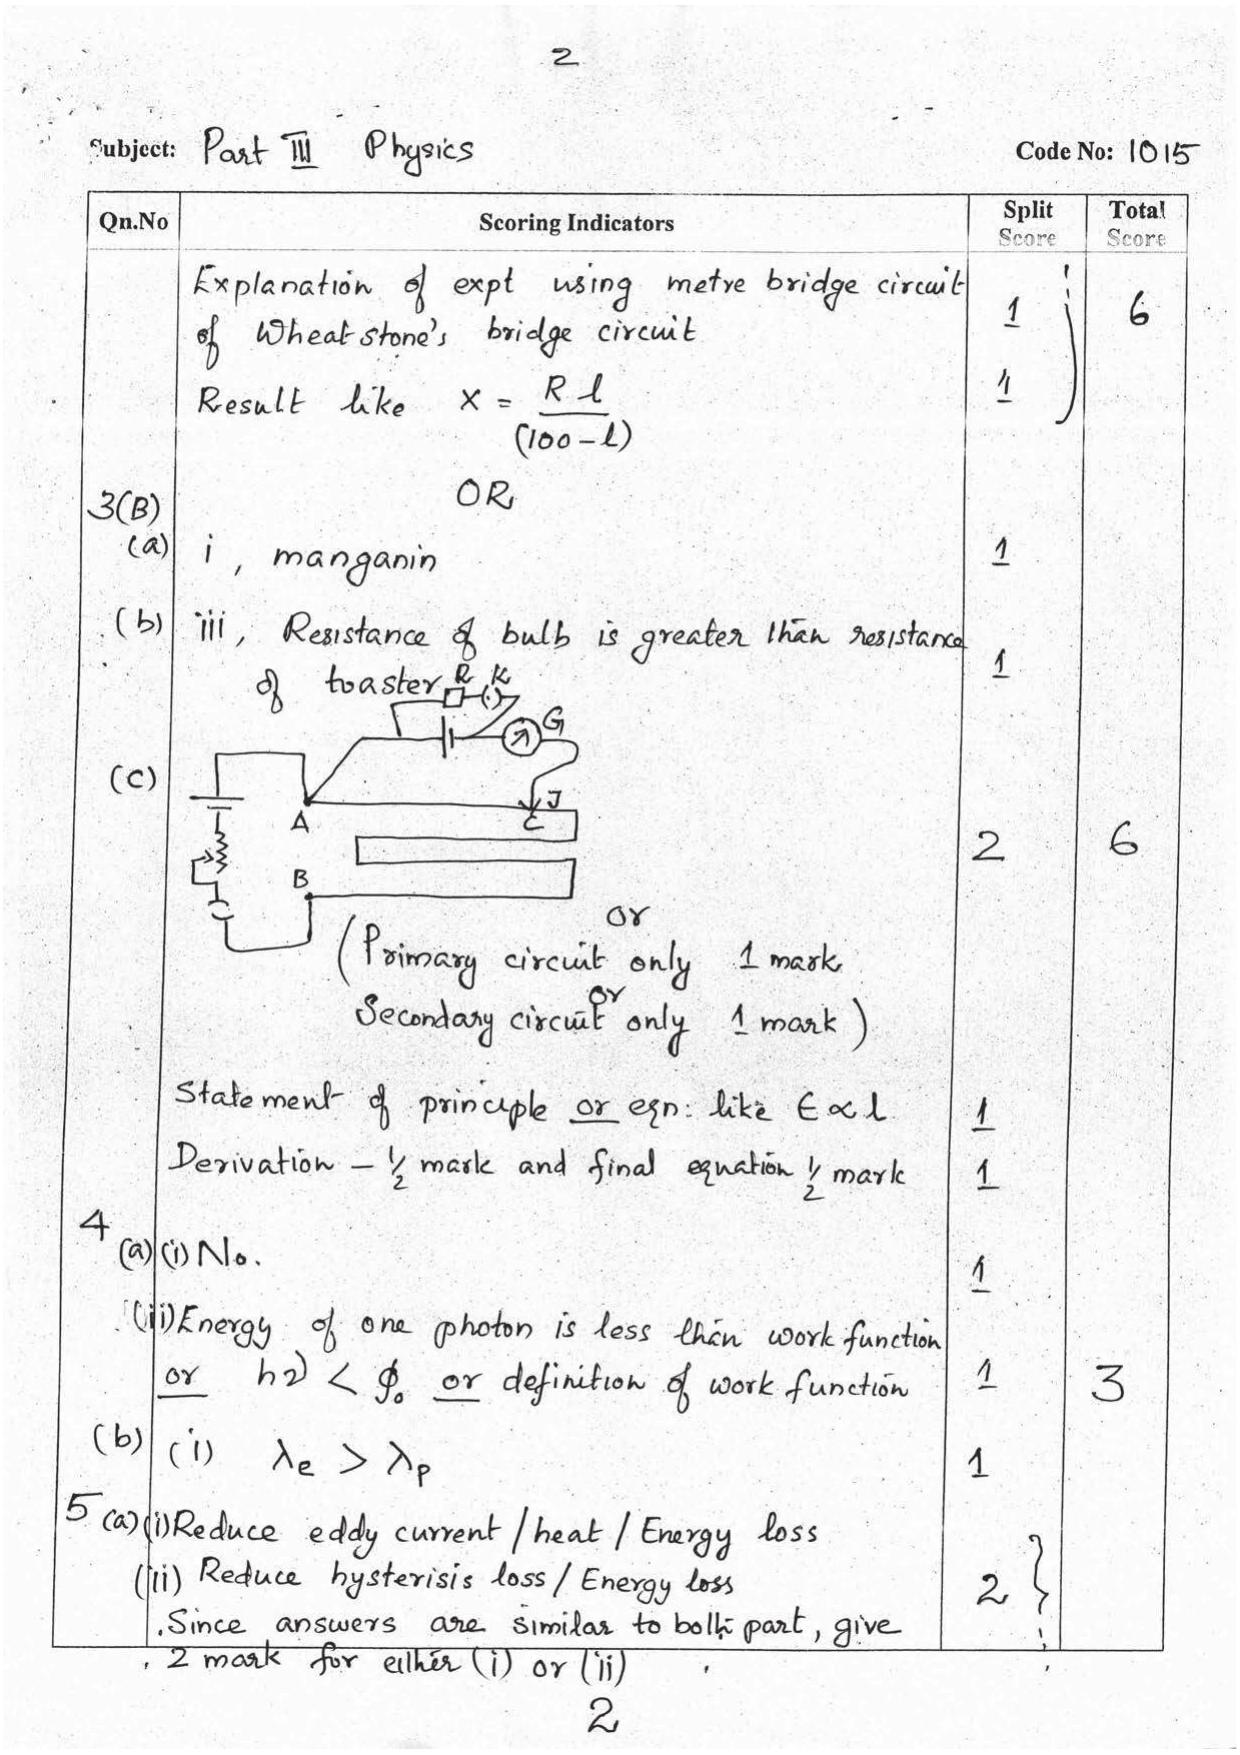 2
Subject: Part III Physics Code No: 1015
Qn.No Scoring Indicators Split Score Total Score
Explanation of expt using metre bridge circuit
of Wheatstone's bridge circuit 1 6
Result like X = R l / (100 - l) 1
OR
3(B)
(a) i, manganin 1
(b) iii, Resistance of bulb is greater than resistance
of toaster 1
R K
G
(c)
J
A C
2 6
B
or
(Primary circuit only 1 mark
or
Secondary circuit only 1 mark)
Statement of principle or eqn: like E ∝ l 1
Derivation - 1/2 mark and final equation 1/2 mark 1
4
(a) (i) No. 1
(ii) Energy of one photon is less than work function
or hν < φ₀ or definition of work function 1 3
(b) (i) λe > λp 1
5 (a) (i) Reduce eddy current / heat / Energy loss
(ii) Reduce hysterisis loss / Energy loss 2
. Since answers are similar to both part, give
. 2 mark for either (i) or (ii)
2